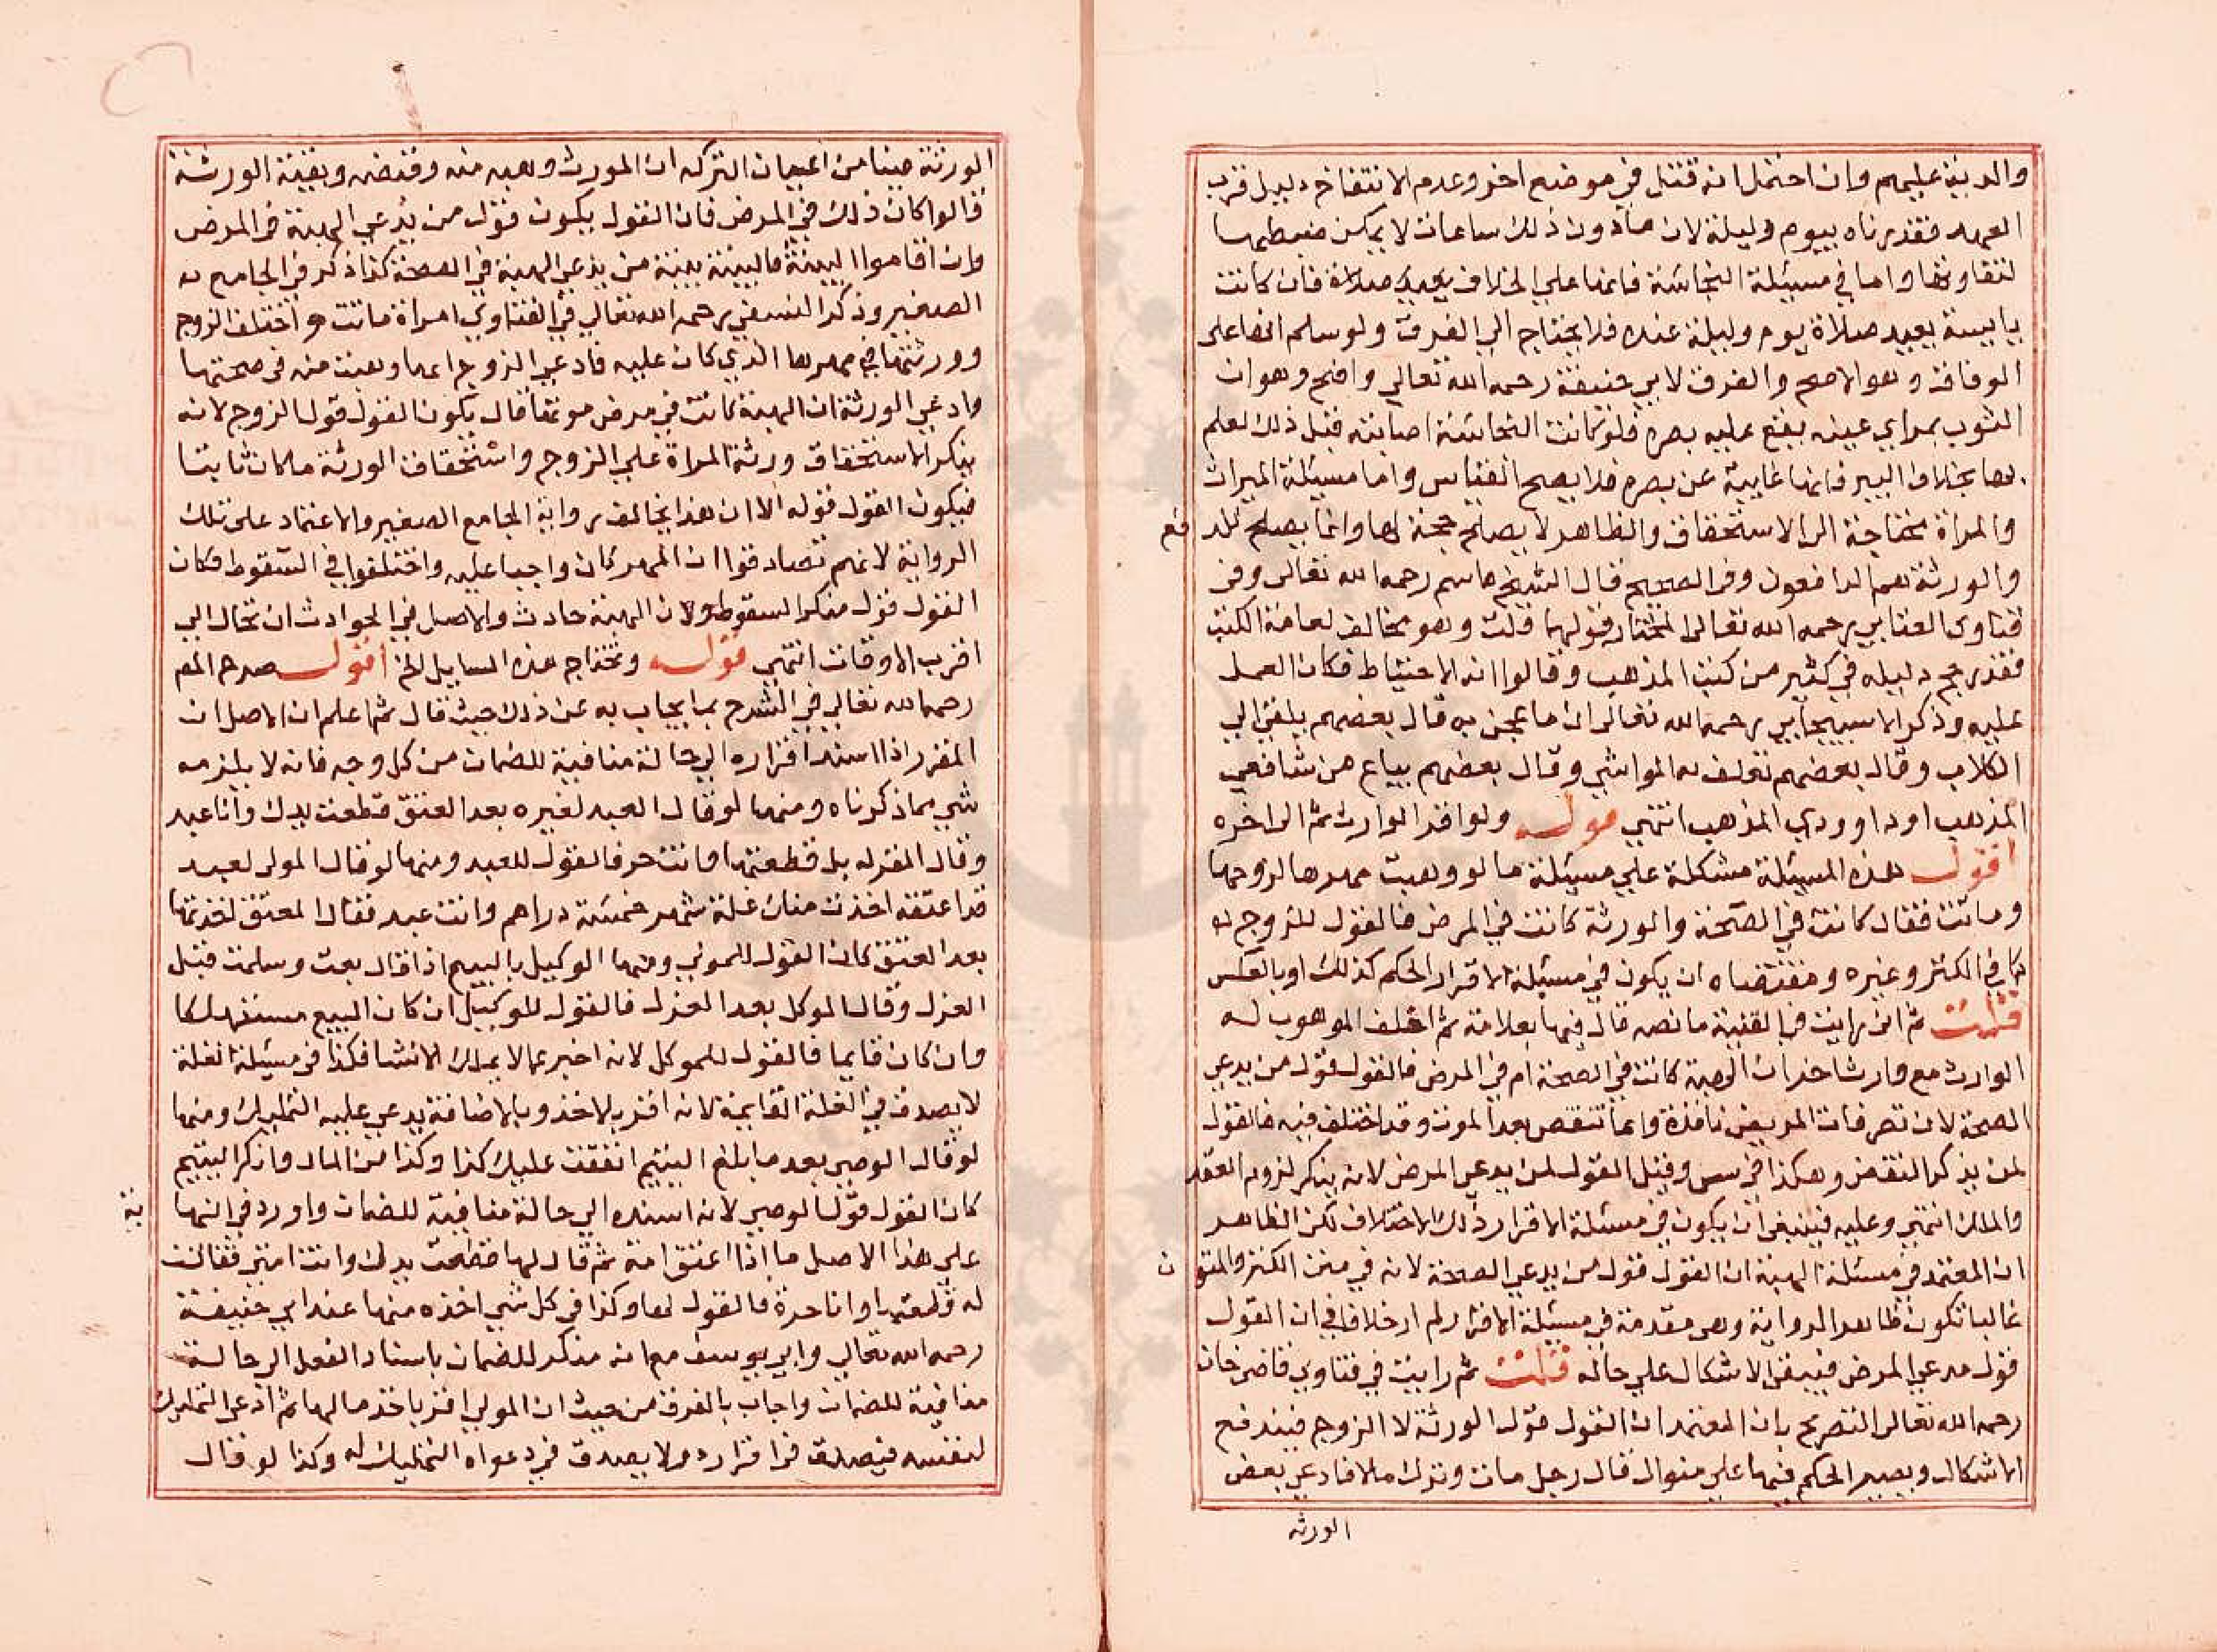 والدية عليهم وان احتمل انه قتل في موضع اخر وعدم الانتفاخ دليل قرب
العهد فقدرناه بيوم وليلة لان مادون ذلك ساعات لا يمكن ضبطها
لتفاوتها واما في مسيلة النجاسة فانها علي الخلاف يعيد صلاة فان كانت
يابسة يعيد صلاة يوم وليلة عنده فلا يحتاج الي الفرق ولو سلم انها علي
الوفاق وهو الاصح والفرق لابي حنيفة رحمه الله تعالي واضح وهو ان
الثوب بمراي عينه يقع عليه بصره فلو كانت النجاسة اصابته قبل ذلك لعلم
بها بخلاف البير فانها غايبة عن بصره فلا يصح القياس واما مسيلة الميراث
والمراة محتاجة الى الاستحقاق والظاهر لا يصلح حجة لها وانما يصلح للد فع
والورثة هم الدافعون وفي الصحيح قال الشيخ قاسم رحمه الله تعالى وفي
فتاوى العتابي رحمه الله تعالى المختار قولهما قلت وهو مخالف لعامة الكتب
فقد رجح دليله في كثير من كتب المذهب وقالوا انه الاحتياط فكان العمل
عليه وذكر الاسبيجابي رحمه الله تعالى ان ما عجن به قال بعضهم يلقى الي
الكلاب وقال بعضهم تعلف به المواشي وقال بعضهم يباع من شافعي
المذهب او داوودي المذهب انتهي قوله ولو اقر الوارث ثم الى اخره
اقول هذه المسيلة مشكلة علي مسيلة ما لو وهبت مهرها لزوجها
وماتت فقال كانت في الصحة والورثة كانت في المرض فالقول للزوج
كما في الكنز وغيره ومقتضاه ان يكون في مسيلة الاقرار الحكم كذلك او بالعكس
قلت ثم اني رايت في القنية ما نصه قال فيها بعلامة ثم اختلف الموهوب له
الوارث مع وارث اخر ان الهبة كانت في الصحة ام في المرض فالقول قول من يدعي
الصحة لان تصرفات المريض نافذة وانما تنتقض بعد الموت وقد اختلف فيه فالقول
لمن ينكر النقض وهكذا في وقيل القول لمن يدعي المرض لانه ينكر لزوم العقد
والملك انتهي وعليه فينبغي ان يكون في مسئلة الاقرار ذلك الاختلاف لكن الظاهر
ان المعتمد في مسئلة الهبة ان القول قول من يدعي الصحة لانه في متن الكنز والمتو ن
غالبا تكون ظاهر الرواية وهي مقدمة في مسيلة الاقرار لم ار خلافا في ان القول
قول مدعي المرض فيبقى الاشكال علي حاله قلت ثم رايت في فتاوي قاضي خان
رحمه الله تعالى التصريح بان المعتمد ان القول قول الورثة لا الزوج فيندفع
الاشكال ويصير الحكم فيها علي منوال قال رجل مات وترك مالا فادعي بعض
الورثه
الورثة عينا من اعيان التركه ان المورث وهبه منه وقبضه وبقية الورثة
قالوا كان ذلك في المرض فان القول يكون قول من يدعي الهبة في المرض
وان اقاموا البينة فالبينة بينة من يدعي الهبة في الصحة كذا ذكر في الجامع
الصغير وذكر النسفي رحمه الله تعالي في الفتاوي امراة ماتت واختلف الزوج
وورثتها في مهرها الذي كان عليه فادعي الزوج انها وهبت منه في صحتها
وادعي الورثة ان الهبة كانت في مرض موتها قال يكون القول قول الزوج لانه
ينكر الاستحقاق ورثة المراة علي الزوج واستحقاق الورثة ما كان ثابتا
فيكون القول قوله الا ان هذا يخالف رواية الجامع الصغير والاعتماد على تلك
الرواية لانهم تصادقوا ان المهر كان واجبا عليه واختلفوا في السقوط فكان
القول قول منكر السقوط ولان الهبة حادث والاصل في الحوادث ان تحال الي
اقرب الاوقات انتهي قوله وتحتاج هذه المسايل الخ اقول صرح المص
رحمه الله تعالي في الشرح بما يجاب به عن ذلك حيث قال ثم اعلم ان الاصل ان
المقر اذا اسند اقراره الي حالة منافية للضمان من كل وجه فانه لا يلزمه
شي مما ذكرناه ومنها لو قال العبد لغيره بعد العتق قطعت يدك وانا عبد
وقال المقر له بل قطعتها وانت حر فالقول للعبد ومنها لو قال المولى لعبد
قد اعتقه اخذت منك غلة شهر خمسة دراهم وانت عبد فقال المعتق اخذتها
بعد العتق كان القول للمولي ومنها الوكيل بالبيع اذا قال بعت وسلمت قبل
العزل وقال الموكل بعد العزل فالقول للوكيل ان كان المبيع مستهلكا
وان كان قايما فالقول للموكل لانه اخبر عما لا يملك الانشا فكذا في مسيلة الغلة
لا يصدق في الغلة القايمة لانه اقر بالاخذ وبالاضافة يدعي عليه التمليك ومنها
لو قال الوصي بعد ما بلغ اليتيم انفقت عليك كذا وكذا من المال وانكر اليتيم
كان القول قول الوصي لانه اسنده الي حالة منافية للضمان واورد في النها ية
على هذا الاصل ما اذا اعتق امة ثم قال لها قطعت يدك وانت امتي فقالت
له قطعتها وانا حرة فالقول لها وكذا في كل شي اخذه منها عند ابي حنيفة
رحمه الله تعالي وابي يوسف مع انه منكر للضمان باسناد الفعل الي حالة
منافية للضمان واجاب بالفرق من حيث ان المولي اقر باخذ مالها ثم ادعى التمليك
لنفسه فيصدق في اقراره ولا يصدق في دعواه التمليك له وكذا لو قال